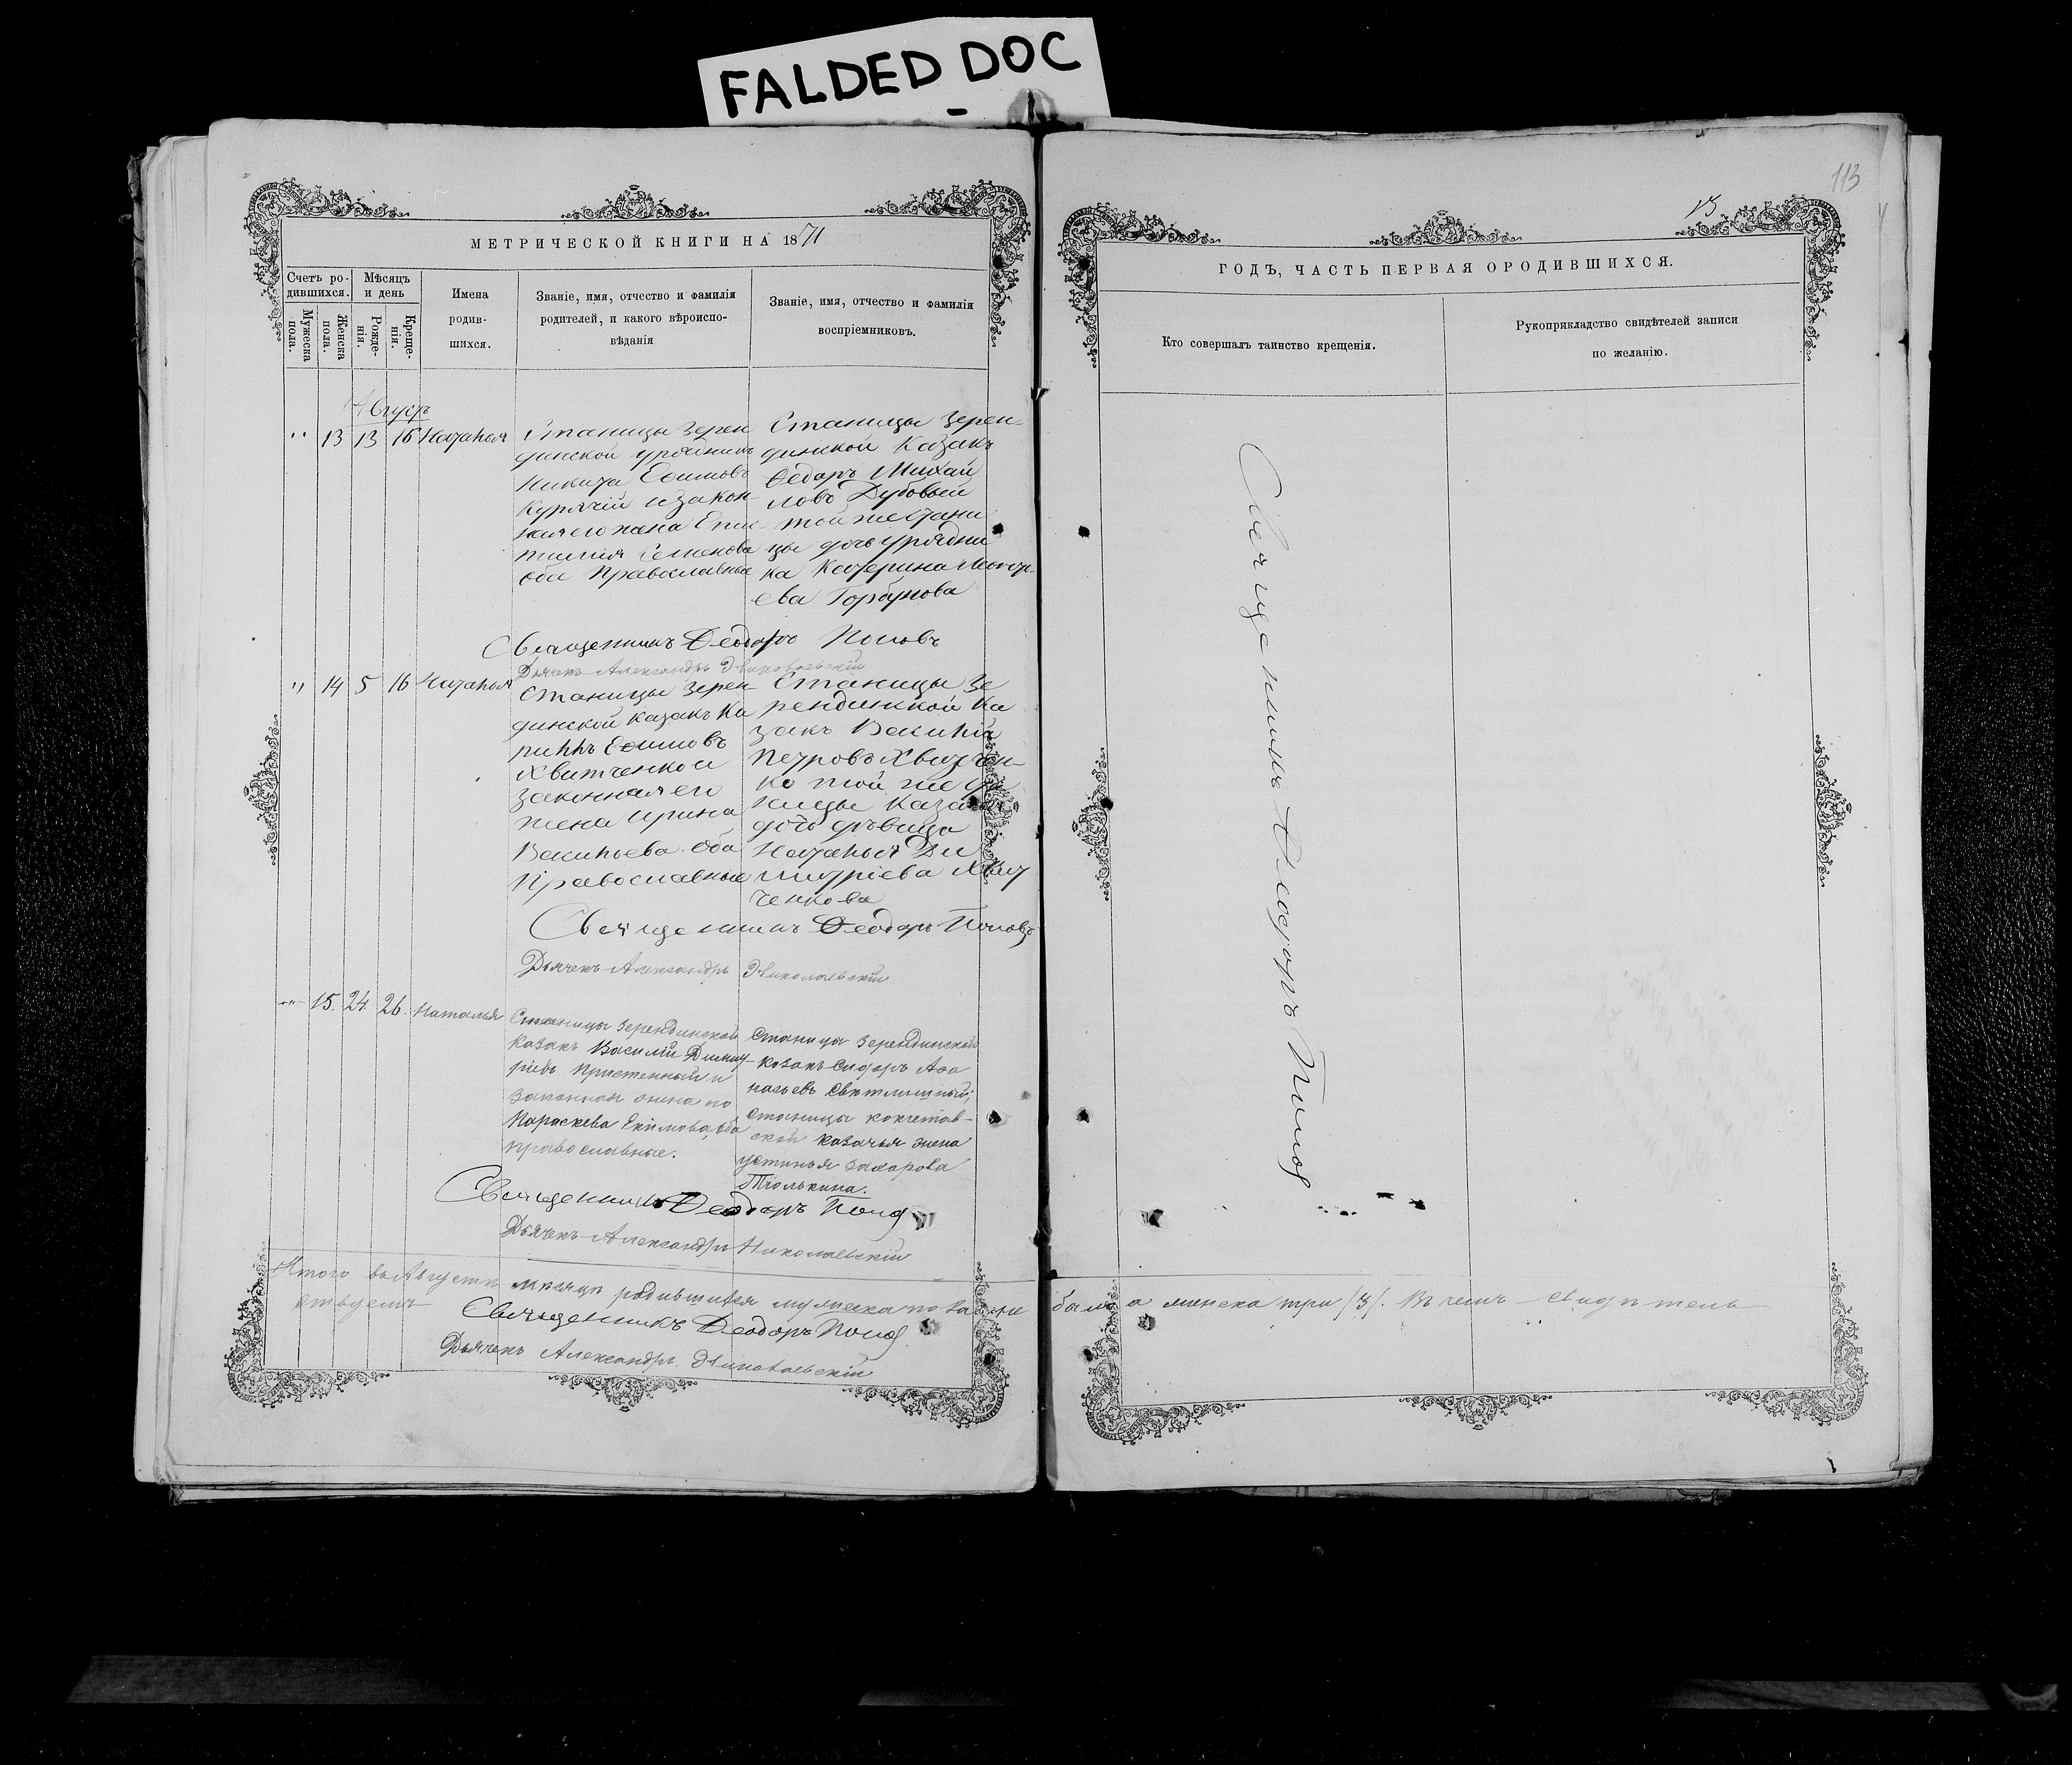 FALDED DOC
113
13
МЕТРИЧЕСКОЙ КНИГИ НА 1871
Счетъ ро-
дившихся.
Мѣсяцъ
и день
Мужеска
пола.
Женска
пола.
Рожде-
нія.
Креще-
нія.
Имена
родив-
шихся.
Званіе, имя, отчество и фамилія
родителей, и какого вѣроиспо-
вѣданія
Званіе, имя, отчество и фамилія
воспріемниковъ.
Августъ
" 13 13 16 Наталья
Станицы Зерен
динской урядникъ
Никита Ефимовъ
Курячій и закон-
ная его жена Епи
Семенова
оба Православные
Станицы Зерен-
динской Казакъ
Ѳедоръ Михай
ловъ Дубовый
той же стани
цы дочь урядни
ка Катерина
ева Горбунова
Священникъ Ѳеодоръ Поповъ
Дьячекъ Александръ Николаевскій
" 14 5 16 Наталья
Станицы Зерен-
динской казакъ Ки
риллъ Ефимовъ
Хвитченко и
законная его
жена Ирина
Васильева оба
Православные
Станицы Зе
рендинской Ка
закъ Василій
Петровъ Хвитчен-
ко той же ста
ницы казачья
дочь дѣвица
Наталья Ди
митріева Хвит
ченкова
Священникъ Ѳеодоръ Поповъ
Дьячекъ Александръ Николаевскій
" 15. 24. 26. Наталья
Станицы Зерендинской
казакъ Василій Димит-
ріевъ Пристенный и
законная жена его
Параскева Екимова, оба
православные.
Станицы Зерендинской
казакъ Сидоръ Аѳа
насьевъ Свѣтлишный;
станицы кокчетав-
ской казачья жена
Устинья Захарова
Тюлькина.
Священникъ Ѳеодоръ Поповъ
Дьячекъ Александръ Николаевскій
Итого въ Августѣ мѣсяцѣ родившихся мужеска пола не было а женска три /3/. Въ чемъ свидѣтель-
ствуемъ
Священникъ Ѳеодоръ Поповъ
Дьячекъ Александръ Николаевскій
ГОДЪ, ЧАСТЬ ПЕРВАЯ О РОДИВШИХСЯ.
Кто совершалъ таинство крещенія.
Рукоприкладство свидѣтелей записи
по желанію.
Священникъ Ѳеодоръ Поповъ